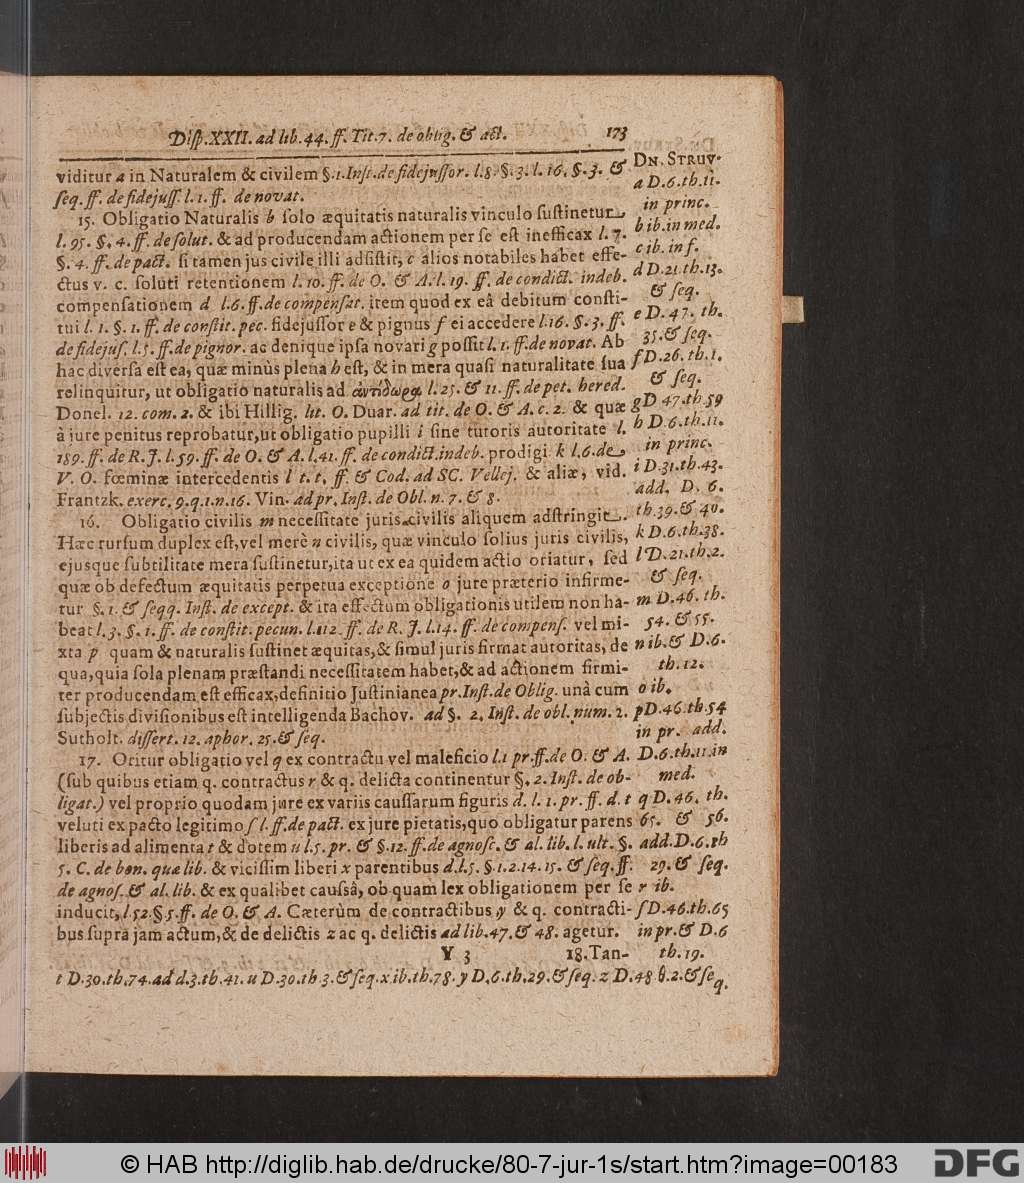 Disp. XXII. ad lib. 44. ff. Tit. 7. de oblig. & act. 173
viditur a in Naturalem & civilem §. 1. Inst. de fidejussor. l. 8. §. 3. l. 16. §. 3. &
seq. ff. de fidejuss. l. 1. ff. de novat.
15. Obligatio Naturalis b solo æquitatis naturalis vinculo sustinetur
l. 95. §. 4. ff. de solut. & ad producendam actionem per se est inefficax l. 7.
§. 4. ff. de pact. si tamen jus civile illi adsistit, c alios notabiles habet effe-
ctus v. c. soluti retentionem l. 10. ff. de O. & A. l. 19. ff. de condict. indeb.
compensationem d l. 6. ff. de compensat. item quod ex eâ debitum consti-
tui l. 1. §. 1. ff. de constit. pec. fidejussor e & pignus f ei accedere l. 16. §. 3. ff.
de fidejus. l. 5. ff. de pignor. ac denique ipsa novari g possit l. 1. ff. de novat. Ab
hac diversa est ea, quæ minùs plena h est, & in mera quasi naturalitate sua
relinquitur, ut obligatio naturalis ad ἀντίδωρα l. 25. & 11. ff. de pet. hered.
Donel. 12. com. 2. & ibi Hillig. lit. O. Duar. ad tit. de O. & A. c. 2. & quæ
à jure penitus reprobatur, ut obligatio pupilli i sine tutoris autoritate l.
189. ff. de R. J. l. 59. ff. de O. & A. l. 41. ff. de condict. indeb. prodigi k l. 6. de
V. O. fœminæ intercedentis l t. t. ff. & Cod. ad SC. Vellej. & aliæ, vid.
Frantzk. exerc. 9. q. 1. n. 16. Vin. ad pr. Inst. de Obl. n. 7. & 8.
16. Obligatio civilis m necessitate juris civilis aliquem adstringit.
Hæc rursum duplex est, vel merè n civilis, quæ vinculo solius juris civilis,
ejusque subtilitate mera sustinetur, ita ut ex ea quidem actio oriatur, sed
quæ ob defectum æquitatis perpetua exceptione o jure præterio infirme-
tur §. 1. & seqq. Inst. de except. & ita effectum obligationis utilem non ha-
beat l. 3. §. 1. ff. de constit. pecun. l. 112. ff. de R. J. l. 14. ff. de compens. vel mi-
xta p quam & naturalis sustinet æquitas, & simul juris firmat autoritas, de
qua, quia sola plenam præstandi necessitatem habet, & ad actionem firmi-
ter producendam est efficax, definitio Justinianea pr. Inst. de Oblig. unà cum
subjectis divisionibus est intelligenda Bachov. ad §. 2. Inst. de obl. num. 2.
Sutholt. dissert. 12. aphor. 25. & seq.
17. Oritur obligatio vel q ex contractu vel maleficio l. 1 pr. ff. de O. & A.
(sub quibus etiam q. contractus r & q. delicta continentur §. 2. Inst. de ob-
ligat.) vel proprio quodam jure ex variis caussarum figuris d. l. 1. pr. ff. d. t
veluti ex pacto legitimo s l. ff. de pact. ex jure pietatis, quo obligatur parens
liberis ad alimenta t & dotem u l. 5. pr. & §. 12. ff. de agnosc. & al. lib. l. ult. §.
5. C. de bon. quæ lib. & vicissim liberi x parentibus d. l. 5. §. 1. 2. 14. 15. & seq. ff.
de agnos. & al. lib. & ex qualibet caussâ, ob quam lex obligationem per se
inducit, l. 52. §. 5. ff. de O. & A. Cæterùm de contractibus y & q. contracti-
bus supra jam actum, & de delictis z ac q. delictis ad lib. 47. & 48. agetur.
Y 3 18. Tan-
t D. 30. th. 74. ad d. 3. th. 41. u D. 30. th 3. & seq. x ib. th. 78. y D. 6. th. 29. & seq. z D. 48 θ. 2. & seq.
DN. STRUV.
a D. 6. th. 11.
in princ.
b ib. in med.
c ib. in f.
d D. 21. th. 13.
& seq.
e D. 47. th.
35. & seq.
f D. 26. th. 1.
& seq.
g D 47. th. 59
h D. 6. th. 11.
in princ.
i D. 31. th. 43.
add. D. 6.
th. 39. & 40.
k D. 6. th. 38.
l D. 21. th. 2.
& seq.
m D. 46. th.
54. & 55.
n ib. & D. 6.
th. 12.
o ib.
p D. 46. th. 54
in pr. add.
D. 6. th. 11. in
med.
q D. 46. th.
65. & 56.
add. D. 6. th
29. & seq.
r ib.
s D. 46. th. 65
in pr. & D. 6
th. 19.
© HAB http://diglib.hab.de/drucke/80-7-jur-1s/start.htm?image=00183
DFG